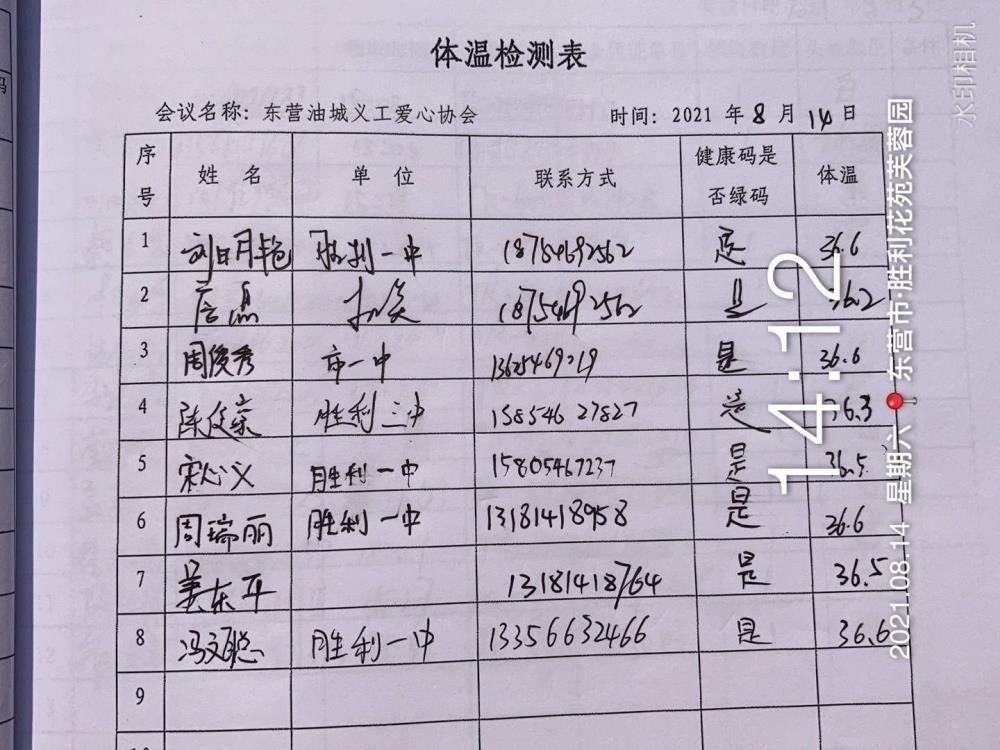 体温检测表
会议名称：东营油城义工爱心协会 时间：2021 年 8 月 14 日
序号 姓 名 单 位 联系方式 健康码是否绿码 体温
1 胜利一中 18754692562 是 36.6
2 18754692562 是 36.2
3 周俊秀 市一中 是 36.6
4 胜利二中 15854627827 是 36.3
5 宋心义 胜利一中 15805467237 是 36.5
6 周瑞丽 胜利一中 13181418958 是 36.6
7 姜东平 13181418764 是 36.5
8 冯文聪 胜利一中 13356632466 是 36.6
9
14:12
2021.08.14 星期六 东营市·胜利花苑芙蓉园
水印相机